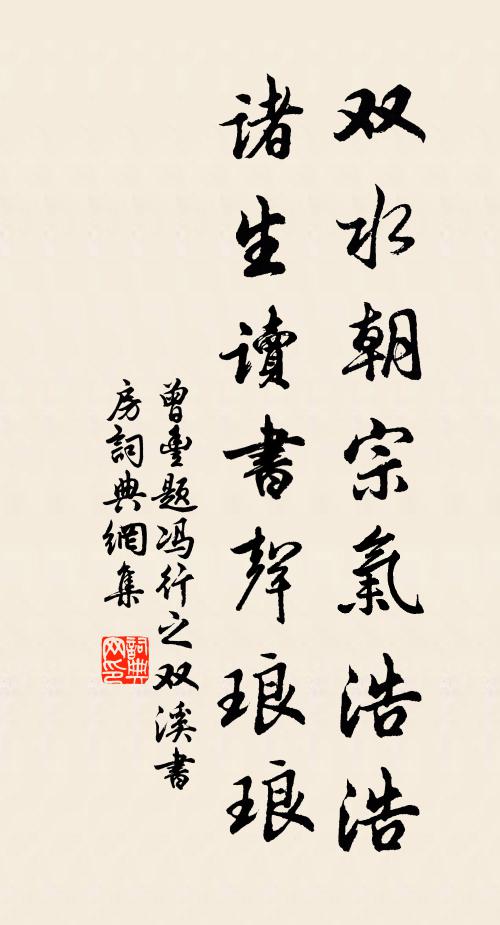 双水朝宗氣浩浩
诸生读書聲琅琅
曾豊题冯行之双溪書
房詞典網集
詞典网印